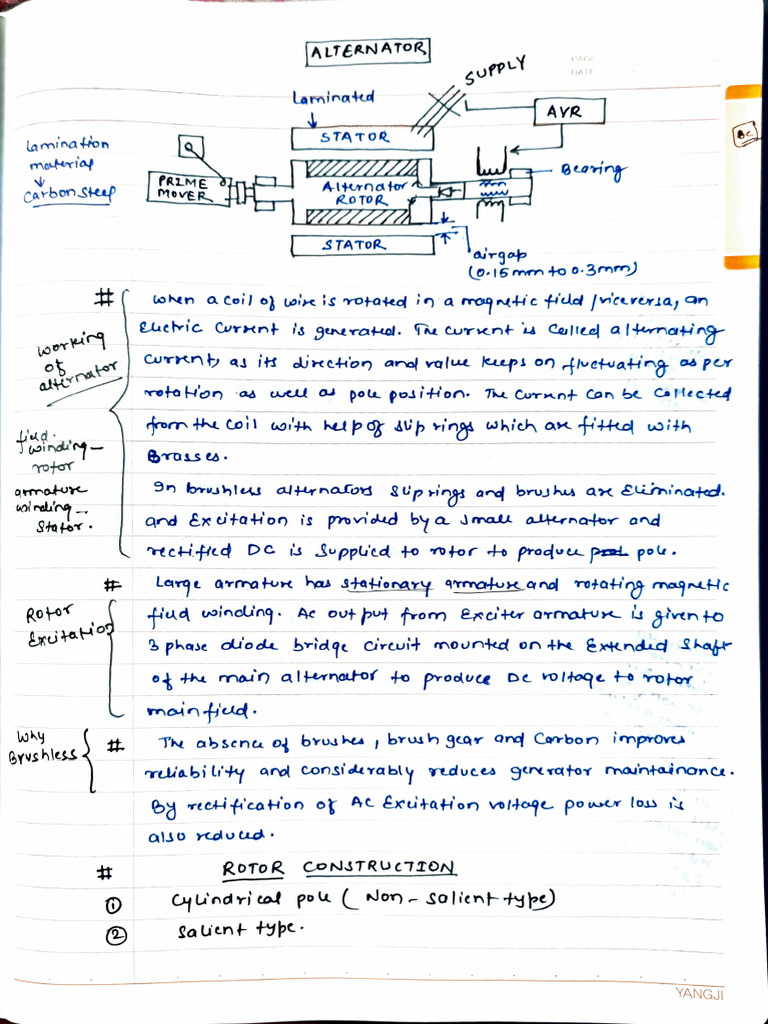 PAGE
DATE
ALTERNATOR
SUPPLY
Laminated
AVR
STATOR
BC
Lamination
material
Carbon Steel
Bearing
PRIME
MOVER
Alternator
ROTOR
STATOR
airgap
(0.15mm to 0.3mm)
# When a coil of wire is rotated in a magnetic field /viceversa, an
Electric Current is generated. The current is called alternating
Current, as its direction and value keeps on fluctuating as per
rotation as well as pole position. The Current can be collected
from the coil with help of slip rings which are fitted with
Brasses.
Working
of
alternator
field
winding -
rotor
armature
winding -
Stator.
In brushless alternators Slip rings and brushes are Eliminated.
and Excitation is provided by a small alternator and
rectified DC is Supplied to rotor to produce pole.
# Large armature has stationary armature and rotating magnetic
field winding. Ac out put from Exciter armature is given to
3 phase diode bridge circuit mounted on the Extended Shaft
of the main alternator to produce DC voltage to rotor
main field.
Rotor
Excitation
Why
Brushless
# The absence of brushes, brush gear and Carbon improves
reliability and considerably reduces generator maintainance.
By rectification of AC Excitation voltage power loss is
also reduced.
# ROTOR CONSTRUCTION
① Cylindrical pole (Non-Salient type)
② Salient type.
YANGJI